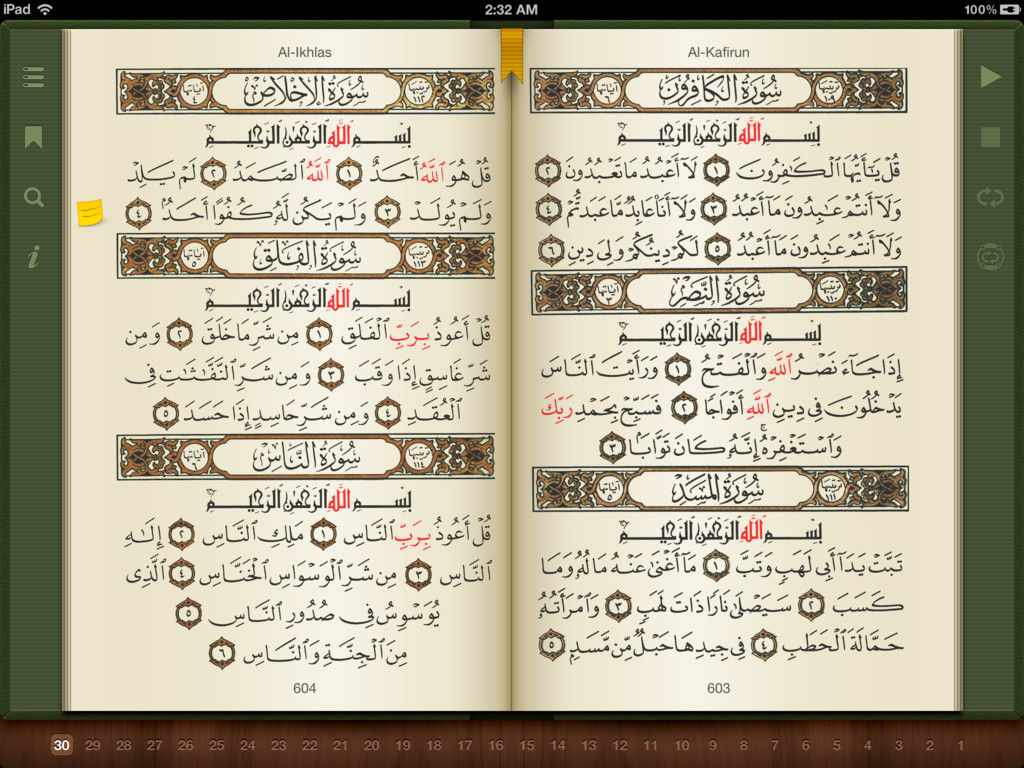 iPad 2:32 AM 100%
Al-Kafirun
ترتيبها ١٠٩ سُورَةُ الكَافِرُونَ آياتها ٦
بِسْمِ اللَّهِ الرَّحْمَٰنِ الرَّحِيمِ
قُلْ يَٰٓأَيُّهَا ٱلْكَٰفِرُونَ ١ لَآ أَعْبُدُ مَا تَعْبُدُونَ ٢
وَلَآ أَنتُمْ عَٰبِدُونَ مَآ أَعْبُدُ ٣ وَلَآ أَنَا۠ عَابِدٌ مَّا عَبَدتُّمْ ٤
وَلَآ أَنتُمْ عَٰبِدُونَ مَآ أَعْبُدُ ٥ لَكُمْ دِينُكُمْ وَلِىَ دِينِ ٦
ترتيبها ١١٠ سُورَةُ النَّصْرِ آياتها ٣
بِسْمِ اللَّهِ الرَّحْمَٰنِ الرَّحِيمِ
إِذَا جَآءَ نَصْرُ ٱللَّهِ وَٱلْفَتْحُ ١ وَرَأَيْتَ ٱلنَّاسَ
يَدْخُلُونَ فِى دِينِ ٱللَّهِ أَفْوَاجًا ٢ فَسَبِّحْ بِحَمْدِ رَبِّكَ
وَٱسْتَغْفِرْهُ ۚ إِنَّهُۥ كَانَ تَوَّابًۢا ٣
ترتيبها ١١١ سُورَةُ المَسَدِ آياتها ٥
بِسْمِ اللَّهِ الرَّحْمَٰنِ الرَّحِيمِ
تَبَّتْ يَدَآ أَبِى لَهَبٍ وَتَبَّ ١ مَآ أَغْنَىٰ عَنْهُ مَالُهُۥ وَمَا
كَسَبَ ٢ سَيَصْلَىٰ نَارًا ذَاتَ لَهَبٍ ٣ وَٱمْرَأَتُهُۥ
حَمَّالَةَ ٱلْحَطَبِ ٤ فِى جِيدِهَا حَبْلٌ مِّن مَّسَدٍۭ ٥
603
Al-Ikhlas
ترتيبها ١١٢ سُورَةُ الإِخْلَاصِ آياتها ٤
بِسْمِ اللَّهِ الرَّحْمَٰنِ الرَّحِيمِ
قُلْ هُوَ ٱللَّهُ أَحَدٌ ١ ٱللَّهُ ٱلصَّمَدُ ٢ لَمْ يَلِدْ
وَلَمْ يُولَدْ ٣ وَلَمْ يَكُن لَّهُۥ كُفُوًا أَحَدٌۢ ٤
ترتيبها ١١٣ سُورَةُ الفَلَقِ آياتها ٥
بِسْمِ اللَّهِ الرَّحْمَٰنِ الرَّحِيمِ
قُلْ أَعُوذُ بِرَبِّ ٱلْفَلَقِ ١ مِن شَرِّ مَا خَلَقَ ٢ وَمِن
شَرِّ غَاسِقٍ إِذَا وَقَبَ ٣ وَمِن شَرِّ ٱلنَّفَّٰثَٰتِ فِى
ٱلْعُقَدِ ٤ وَمِن شَرِّ حَاسِدٍ إِذَا حَسَدَ ٥
ترتيبها ١١٤ سُورَةُ النَّاسِ آياتها ٦
بِسْمِ اللَّهِ الرَّحْمَٰنِ الرَّحِيمِ
قُلْ أَعُوذُ بِرَبِّ ٱلنَّاسِ ١ مَلِكِ ٱلنَّاسِ ٢ إِلَٰهِ
ٱلنَّاسِ ٣ مِن شَرِّ ٱلْوَسْوَاسِ ٱلْخَنَّاسِ ٤ ٱلَّذِى
يُوَسْوِسُ فِى صُدُورِ ٱلنَّاسِ ٥
مِنَ ٱلْجِنَّةِ وَٱلنَّاسِ ٦
604
30 29 28 27 26 25 24 23 22 21 20 19 18 17 16 15 14 13 12 11 10 9 8 7 6 5 4 3 2 1